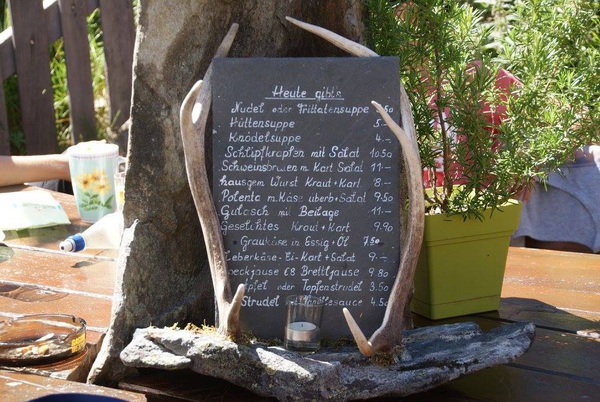 Heute gibt's
Nudel oder Frittatensuppe 3.50
Hüttensuppe 5.-
Knödelsuppe 4.-
Schlipfkrapfen mit Salat 10.50
Schweinsbraten m. Kart Salat 11.-
hausgem Wurst Kraut + Kart. 8.-
Polenta m. Käse überb + Salat 9.50
Gulasch mit Beilage 11.-
Geselchtes Kraut + Kart. 9.90
Graukäse in Essig + Öl 7.50
Leberkäse - Ei - Kart + Salat 9.-
Speckjause 6.8 Brettljause 9.80
Apfel oder Topfenstrudel 3.50
Strudel mit Vanillesauce 4.50